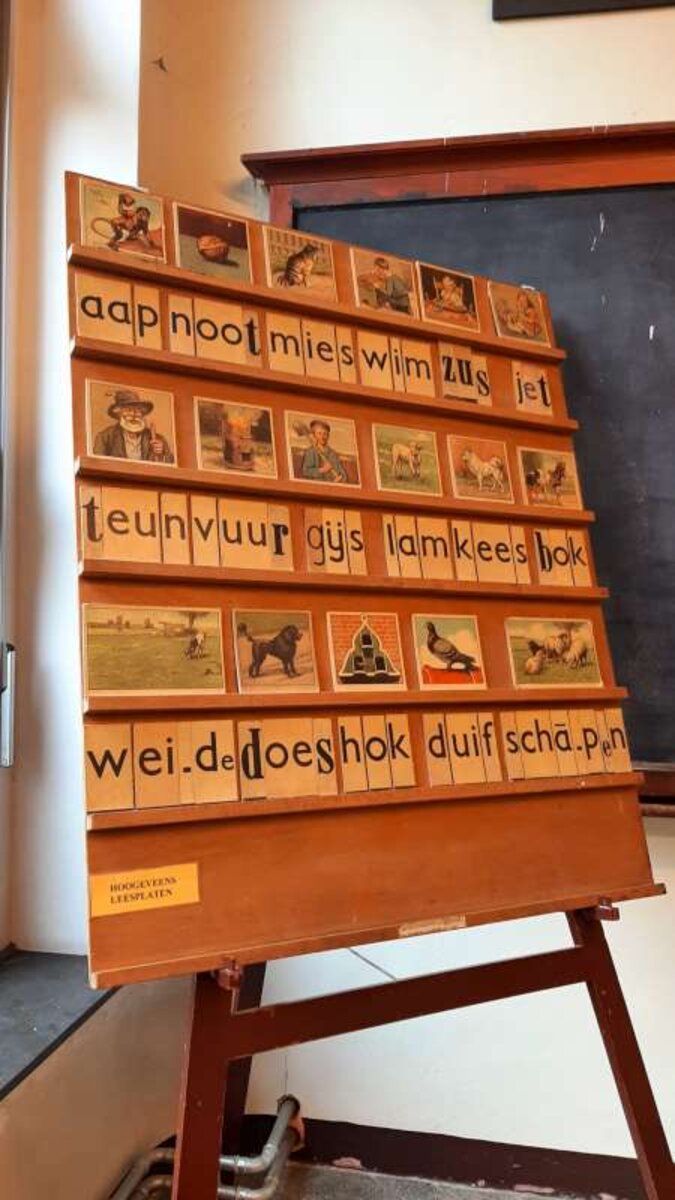 aap noot mies wim zus jet
teun vuur gijs lam kees bok
wei.de does hok duif schā.pen
HOOGEVEENS
LEESPLATEN